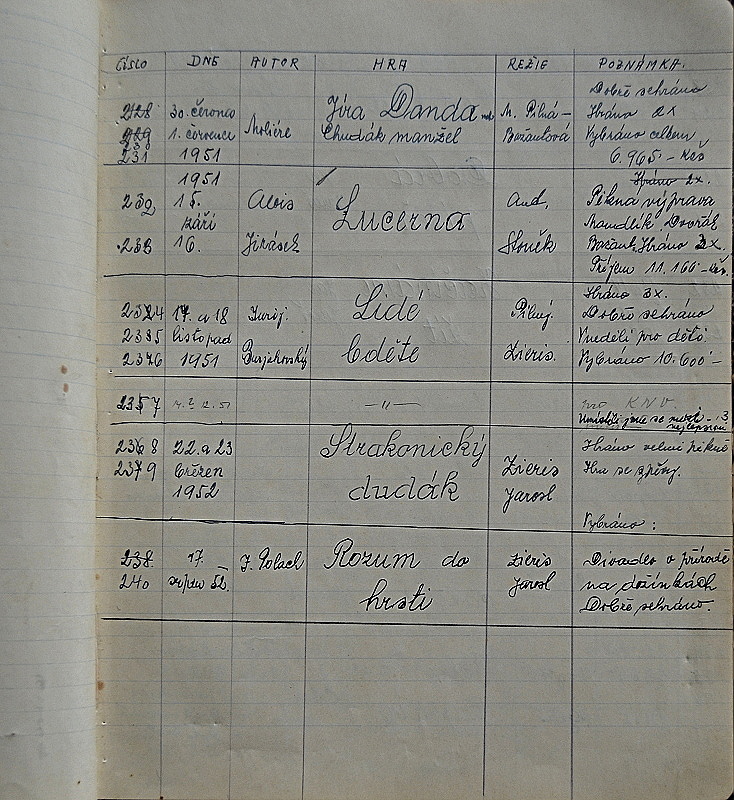 ČÍSLO DNE AUTOR HRA REŽIE POZNÁMKA.
Dobře sehráno
228 30. června Jíra Danda neb M. Pilná – Hráno 2x
229 1. července Moliére Chudák manžel Bažantová Vybráno celkem
231 1951 6.965.- Kčs
1951 Hráno 2x.
232 15. Alois Lucerna And. Pěkná výprava
září Mandlík Dvořák
233 16. Jirásek Sloněk Bažant. Hráno 2x.
Příjem 11.166 - Kčs.
Hráno 3x.
2324 17. a 18 Jurij. Lidé Pilný. Dobře sehráno
2335 listopad V neděli pro děti
2376 1951 Burjakovský bděte Zieris. Vybráno 10.600 -
2357 12. 51 —"— pro KNV.
Umístili jsme se mezi 3
nejlepšími
2368 22. a 23 Strakonický Hráno velmi pěkně
2379 březen dudák Zieris Hra se zpěvy.
1952 Jarosl
Vybráno :
238 17. J. Polach Rozum do Zieris Divadlo v přírodě
240 srpna 52. hrsti Jarosl na dožínkách
Dobře sehráno.